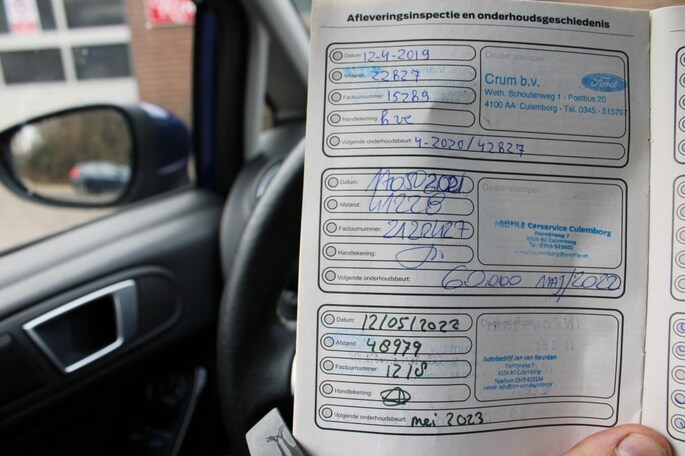 Afleveringsinspectie en onderhoudsgeschiedenis
Datum: 12-4-2019
Afstand: 22827
Factuurnummer: 15289
Handtekening:
Volgende onderhoudsbeurt: 4-2020/42827
Dealerstempel
Crum b.v.
Ford
Weth. Schoutenweg 1 - Postbus 20
4100 AA Culemborg - Tel. 0345 - 51579
Datum: 11052021
Afstand: 41228
Factuurnummer: 2122427
Handtekening:
Volgende onderhoudsbeurt: 60.000 MAJ/2022
Dealerstempel
Carservice Culemborg
Datum: 12/05/2022
Afstand: 48979
Factuurnummer: 12/8
Handtekening:
Volgende onderhoudsbeurt: mei 2023
Dealerstempel
Autobedrijf Jan van Beurden